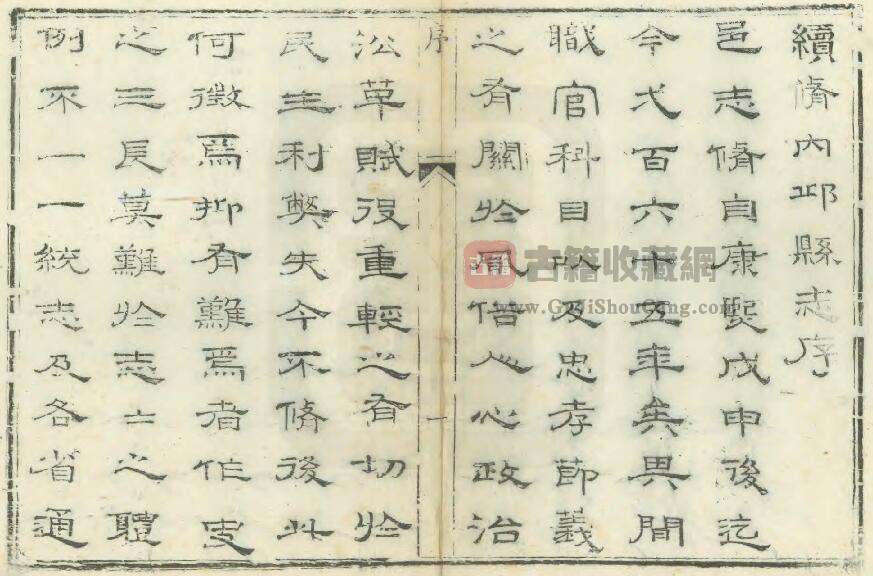 續脩內邱縣志序
邑志脩自康熙戊申後迄
今弌百六十五年矣其間
職官科目以及忠孝節義
之有關於風俗人心政治
序
一
沿革賦役重輕之有切於
民生利弊失今不脩後此
何徵焉抑有難焉者作史
之三長莫難於志二之體
例不一一統志及各省通
古籍
古籍收藏網
www.GuJiShouCang.com